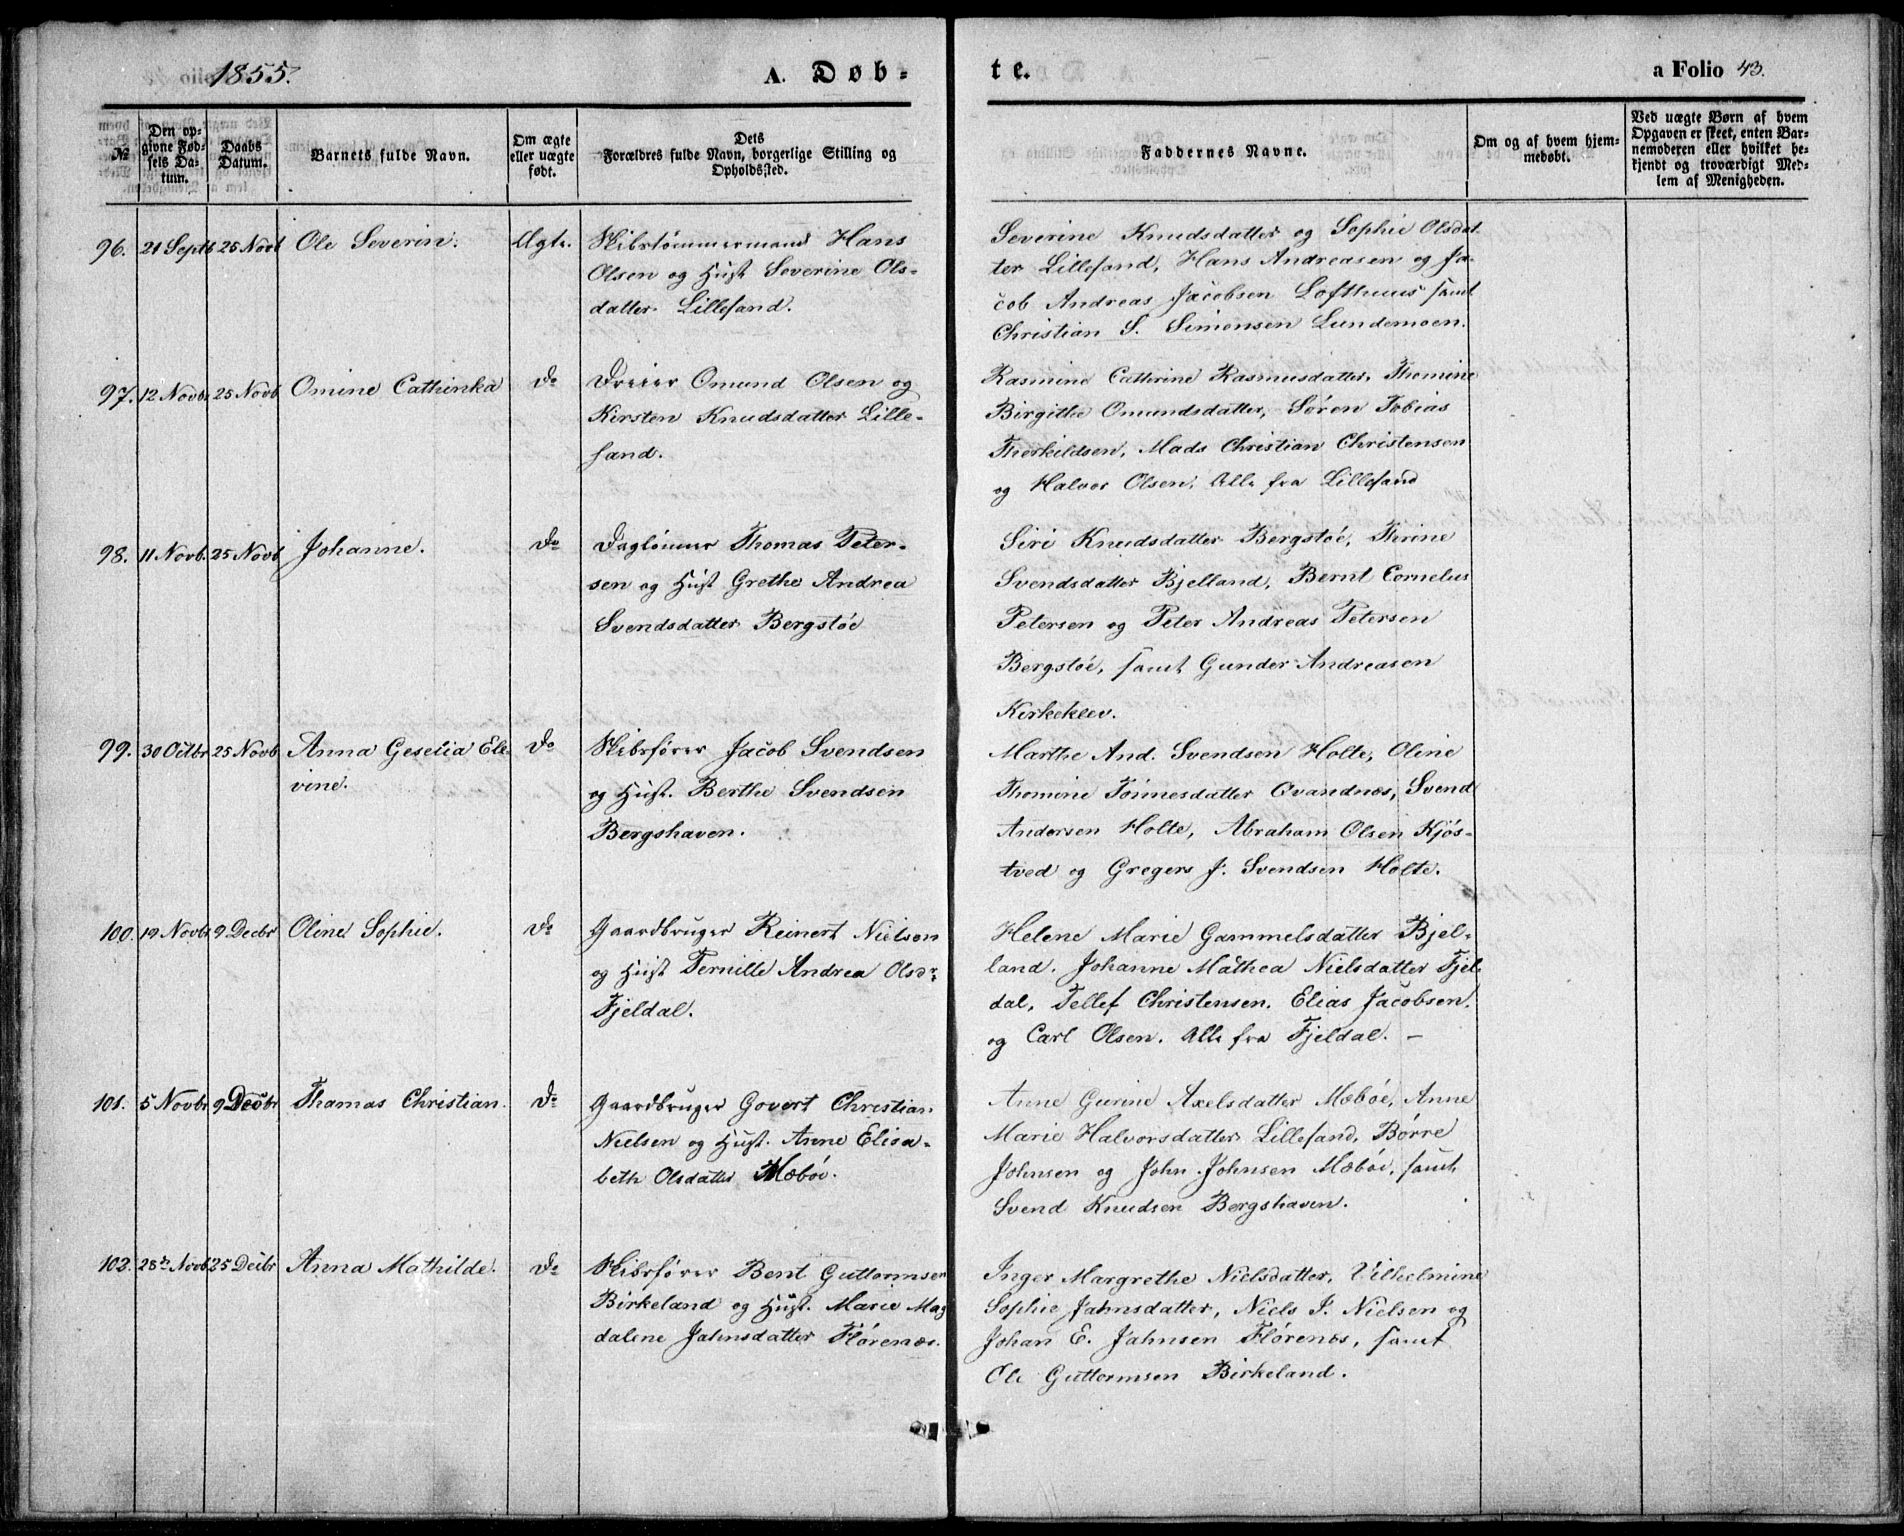 1855.
A. Døb-
te.
a Folio 43.
№
Den op-
givne Fød-
sels Da-
tum.
Daabs
Datum.
Barnets fulde Navn.
Om ægte
eller uægte
født.
Dets
Forældres fulde Navn, borgerlige Stilling og
Opholdssted.
Faddernes Navne.
Om og af hvem hjem-
medøbt.
Ved uægte Børn af hvem
Opgaven er skeet, enten Bar-
nemoderen eller hvilket be-
kjendt og troværdigt Med-
lem af Menigheden.
96. 21 Septb 25 Novb Ole Severin. Ægte. Skibstømmermand Hans
Olsen og Hust Severine Ols-
datter Lillesand.
Severine Knudsdatter og Sophie Olsdat
ter Lillesand, Hans Andreasen og Ja-
cob Andreas Jacobsen Lofthuus samt
Christian S. Simonsen Lundemoen.
97. 12 Novbr 25 Novb Omine Cathinka Do Dreier Omund Olsen og
Kirsten Knudsdatter Lille-
sand.
Rasmine Cathrine Rasmusdatter, Thomine
Birgithe Omundsdatter, Søren Tobias
Therkildsen, Mads Christian Christensen
og Halvor Olsen, Alle fra Lillesand
98. 11 Novb. 25 Novb Johanne. Do Daglønner Thomas Peter-
sen og Hust Grethe Andrea
Svendsdatter Bergstøe
Siri Knudsdatter Bergstøe, Thrine
Svendsdatter Bjelland, Bernt Cornelius
Petersen og Peter Andreas Petersen
Bergstøe, samt Gunder Andreasen
Kirkeklev.
99. 30 Octbr 25 Novb Anna Geselia Ele
vine. Do Skibsfører Jacob Svendsen
og Hust. Berthe Svendsen
Bergshaven.
Marthe And. Svendsen Holte, Oline
Thomine Tønnesdatter Qvandnes, Svend
Andersen Holte, Abraham Olsen Kjøs-
tved og Gregers J. Svendsen Holte.
100. 19 Novbr 9 Decbr Oline Sophie. Do Gaardbruger Reinert Nielsen
og Hust Pernille Andrea Olsdr
Fjeldal.
Helene Marie Gammelsdatter Bjel-
land. Johanne Mathea Nielsdatter Fjel
dal, Tellef Christensen. Elias Jacobsen.
og Carl Olsen. Alle fra Fjeldal. –
101. 5 Novbr 9 Decbr Thomas Christian. Do Gaardbruger Govert Christian
Nielsen og Hust. Anne Elisa-
beth Olsdatter Mæbøe.
Anne Gurine Axelsdatter Mæbøe, Anne
Marie Halvorsdatter Lillesand, Børre
Johnsen og John Johnsen Mæbøe, samt
Svend Knudsen Bergshaven.
102. 28de Novb 25 Decbr Anna Mathilde. Do Skibsfører Bent Guttormsen
Birkeland og Hust. Marie Mag
dalene Jahnsdatter Flørenæs.
Inger Margrethe Nielsdatter, Vilhelmine
Sophie Jahnsdatter, Niels J. Nielsen og
Johan E. Jahnsen Flørenes, samt
Ole Guttormsen Birkeland.